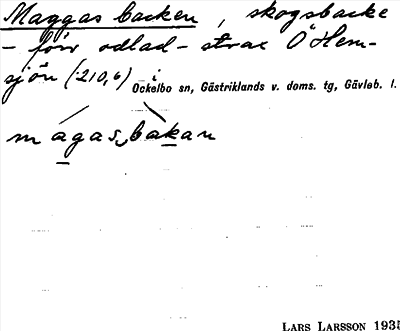 Maggas backen, skogsbacke
- förr odlad - strax Ö Hem-
sjön (210,6) i
Ockelbo sn, Gästriklands v. doms. tg, Gävleb. l.
magas bakan
LARS LARSSON 1935